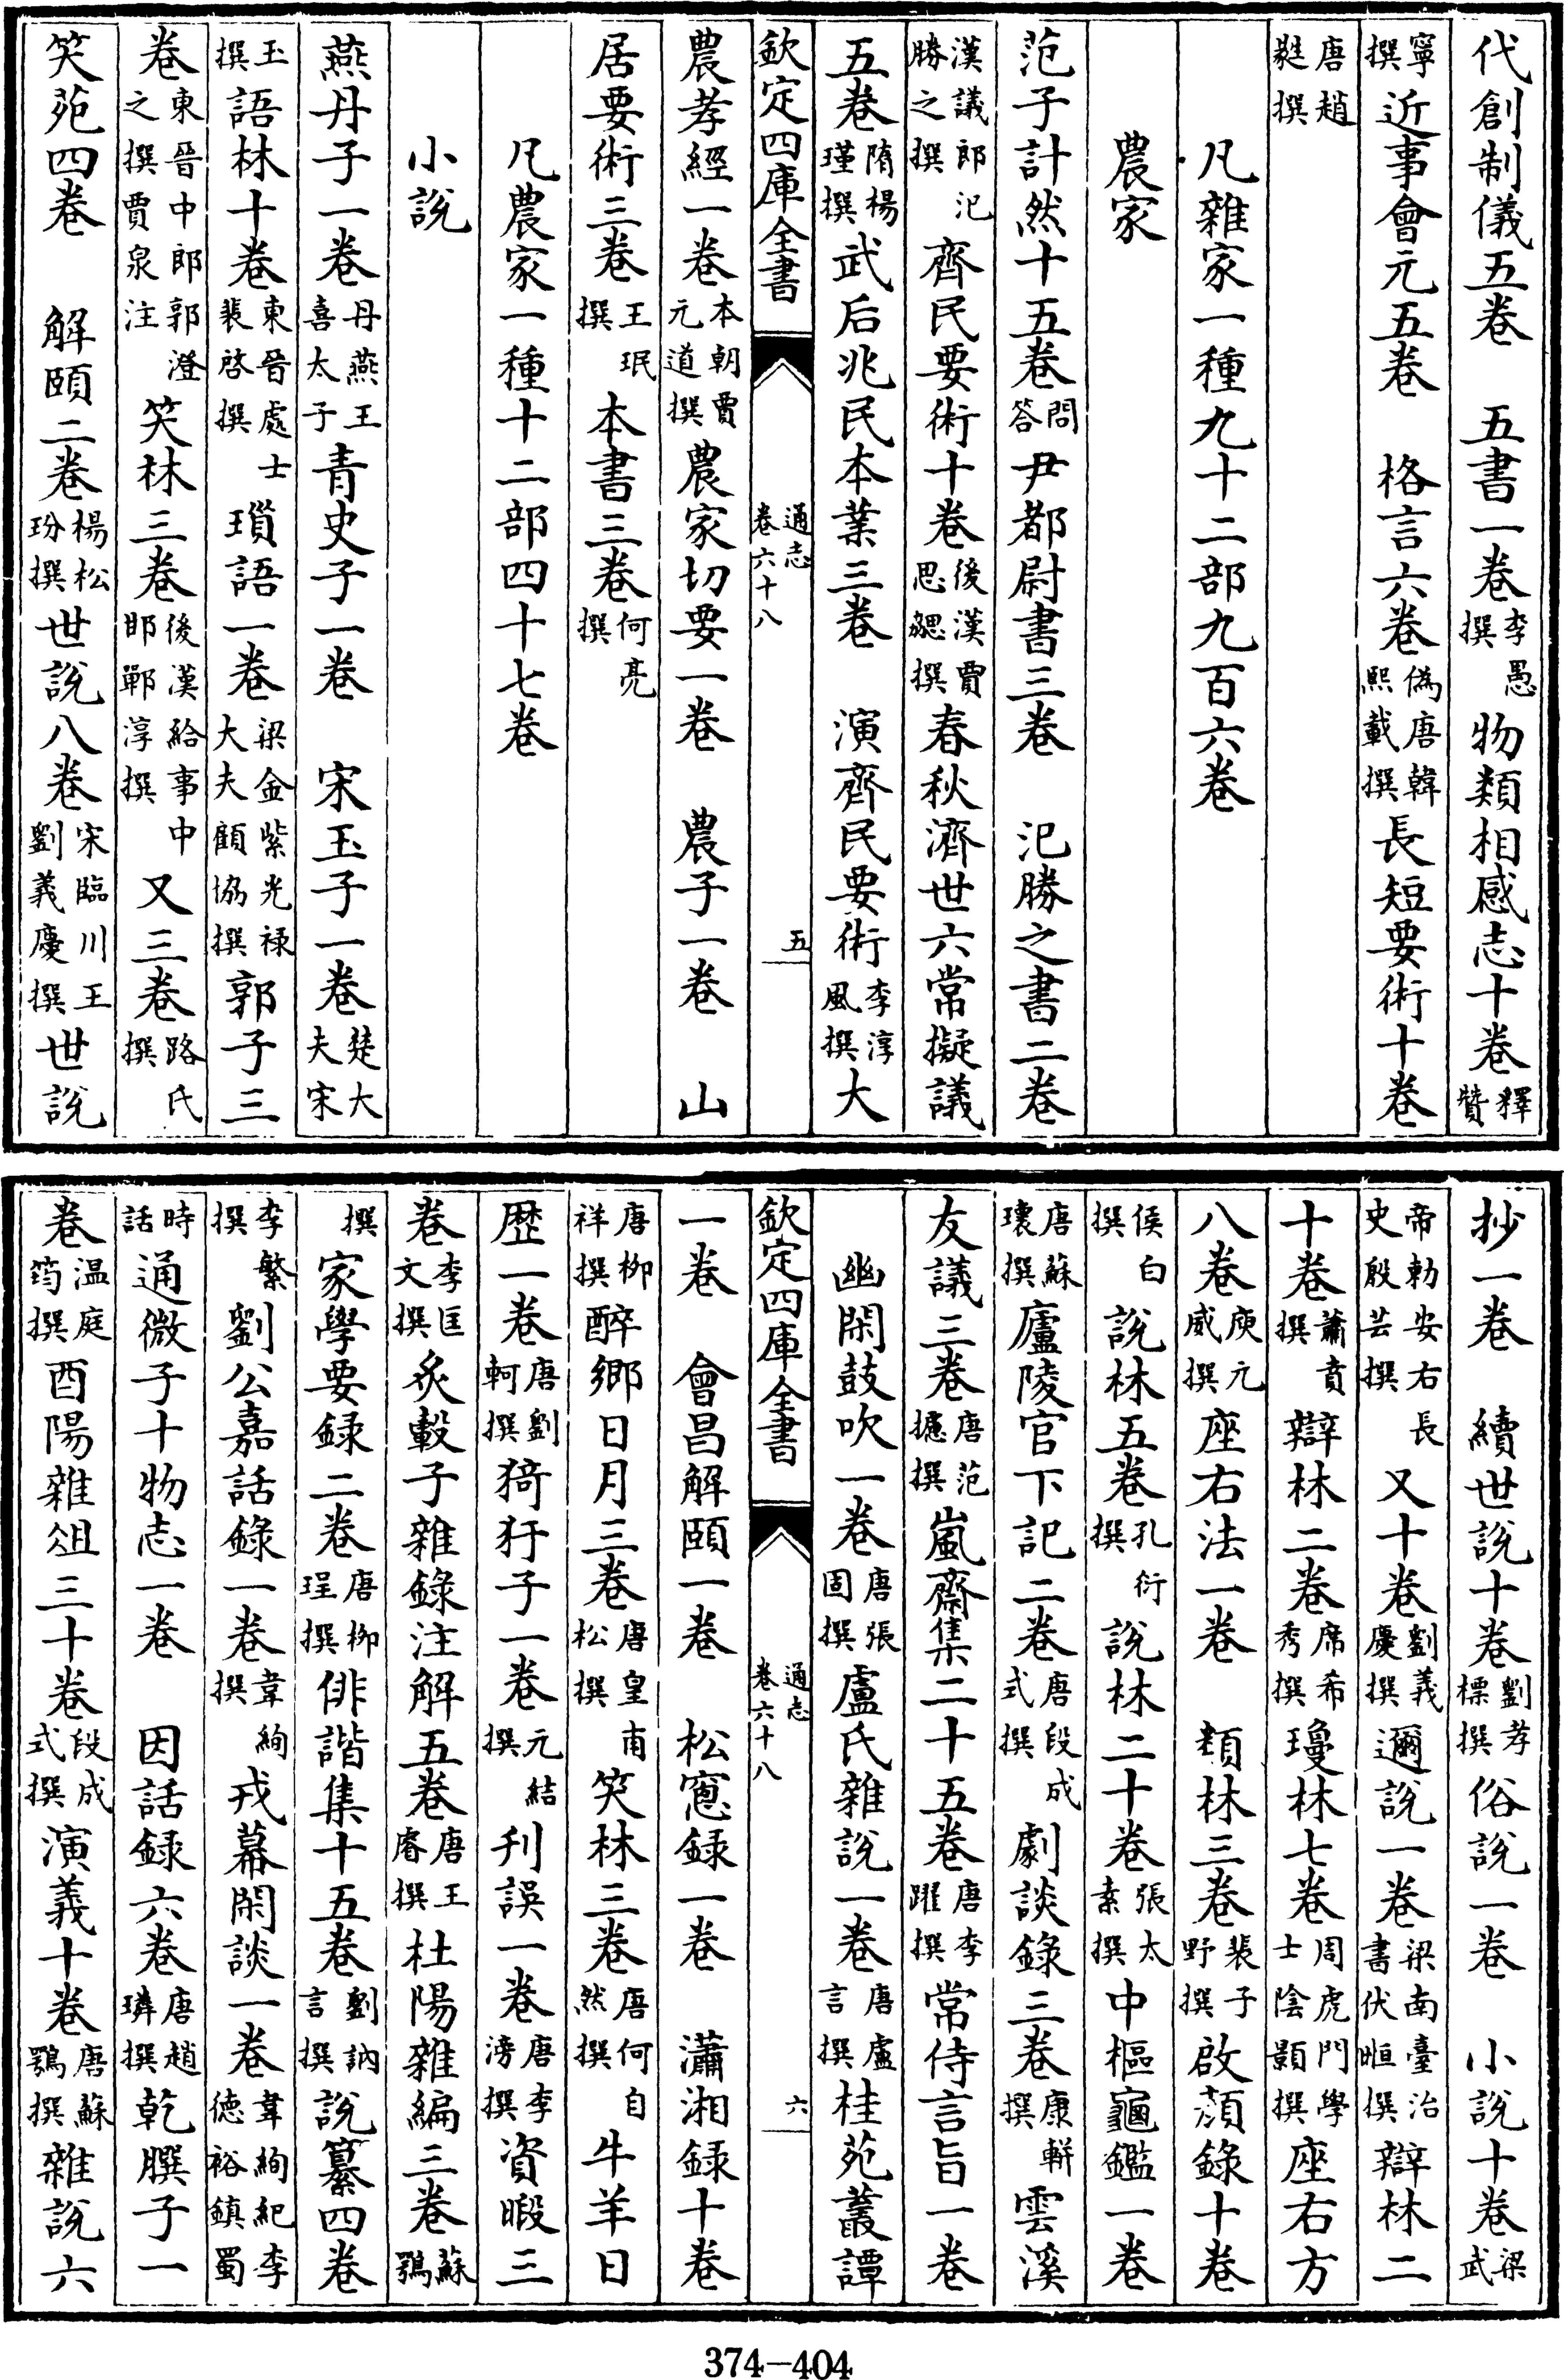 代創制儀五卷　五書一卷李愚撰物類相感志十卷釋贊
寧撰近事會元五卷　格言六卷偽唐韓熙載撰長短要術十卷
唐趙蕤撰
凡雜家一種九十二部九百六卷
農家
范子計然十五卷問答尹都尉書三卷　氾勝之書二卷
漢議郎氾勝之撰齊民要術十卷後漢賈思勰撰春秋濟世六常擬議
五卷隋楊瑾撰武后兆民本業三卷　演齊民要術李淳風撰大
欽定四庫全書　通志卷六十八　五
農孝經一卷本朝賈元道撰農家切要一卷　農子一卷　山
居要術三卷王珉撰本書三卷何亮撰
凡農家一種十二部四十七卷
小說
燕丹子一卷丹燕王喜太子青史子一卷　宋玉子一卷楚大夫宋
玉撰語林十卷東晉處士裴啓撰瑣語一卷梁金紫光祿大夫顧協撰郭子三
卷東晉中郎郭澄之撰賈泉注笑林三卷後漢給事中邯鄲淳撰又三卷路氏撰
笑苑四卷　解頤二卷楊松玢撰世說八卷宋臨川王劉義慶撰世說
抄一卷　續世說十卷劉孝標撰俗說一卷　小說十卷梁武
帝勅安右長史殷芸撰又十卷劉義慶撰邇說一卷梁南臺治書伏暅撰辯林二
十卷蕭賁撰辯林二卷席希秀撰瓊林七卷周虎門學士陰顥撰座右方
八卷庾元威撰座右法一卷　類林三卷裴子野撰啟顏錄十卷
侯白撰說林五卷孔衍撰說林二十卷張太素撰中樞龜鑑一卷
唐蘇瓌撰廬陵官下記二卷唐段成式撰劇談錄三卷康軿撰雲溪
友議三卷唐范攄撰嵐齋集二十五卷唐李躍撰常侍言旨一卷
幽閑鼓吹一卷唐張固撰盧氏雜說一卷唐盧言撰桂苑叢譚
欽定四庫全書　通志卷六十八　六
一卷　會昌解頤一卷　松窻録一卷　瀟湘録十卷
唐柳祥撰醉鄉日月三卷唐皇甫松撰笑林三卷唐何自然撰牛羊日
歴一卷唐劉軻撰猗犴子一卷元結撰刋誤一卷唐李涪撰資暇三
卷李匡文撰炙轂子雜錄注解五卷唐王睿撰杜陽雜編三卷蘇鶚
撰家學要録二卷唐柳珵撰俳諧集十五卷劉訥言撰說纂四卷
李繁撰劉公嘉話錄一卷韋絢撰戎幕閑談一卷韋絢紀李德裕鎮蜀
時話通微子十物志一卷　因話録六卷唐趙璘撰乾𦠆子一
卷温庭筠撰酉陽雜俎三十卷段成式撰演義十卷唐蘇鶚撰雜說六
374-404